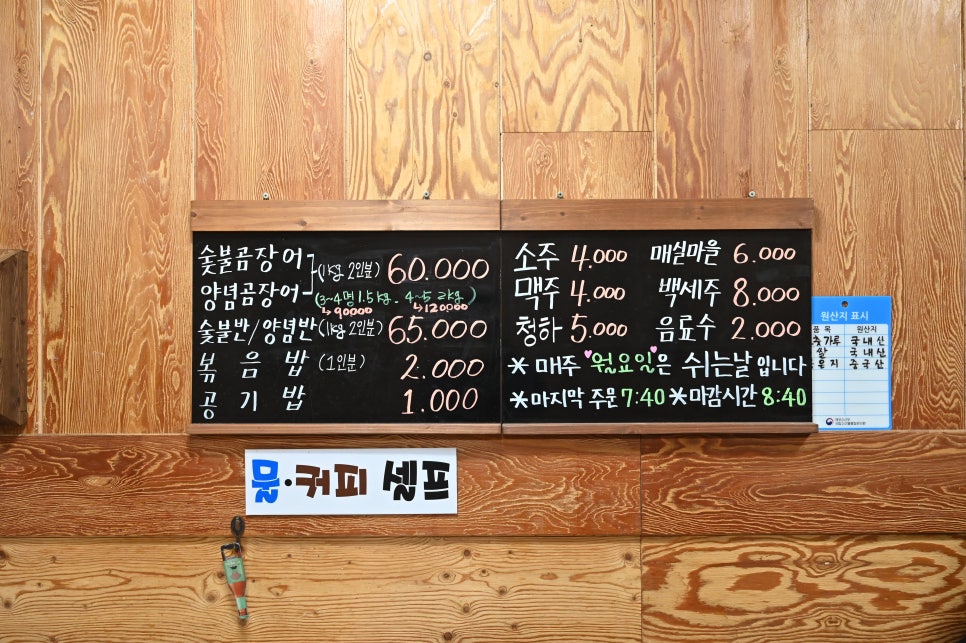 숯불곰장어
양념곰장어
(1kg 2인분) 60.000
(3~4명 1.5kg. 4~5 2kg)
↳90000 ↳120000
숯불반/양념반 (1kg 2인분) 65.000
볶음밥 (1인분) 2.000
공기밥 1.000
소주 4.000 매실마을 6.000
맥주 4.000 백세주 8.000
청하 5.000 음료수 2.000
* 매주 월요일은 쉬는날입니다
*마지막 주문 7:40 *마감시간 8:40
원산지 표시
품목 원산지
국내산
쌀 국내산
중국산
물·커피 셀프